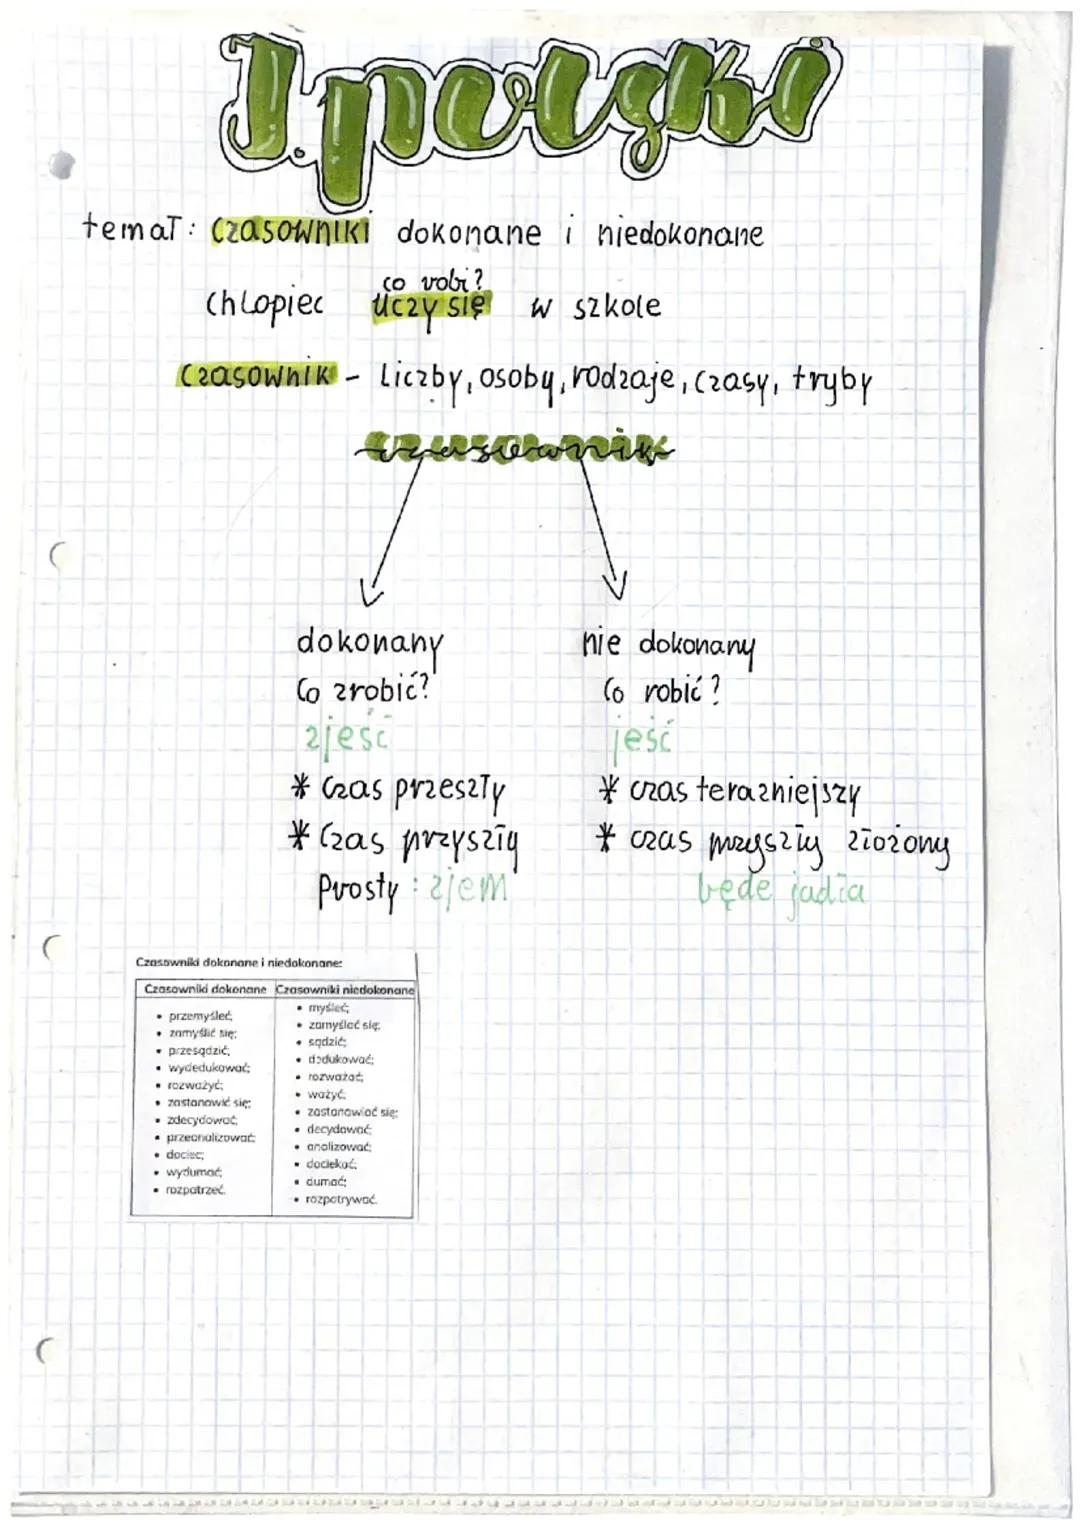 J. polski
temat: Czasowniki dokonane i niedokonane
co robi?
Chłopiec uczy się w szkole
Czasownik - liczby, osoby, rodzaje, czasy, tryby
czasownik
dokonany
Co zrobić?
zjeść
* Czas przeszły
* Czas przyszły
Prosty: zjem
nie dokonany
Co robić?
jeść
* czas terazniejszy
* czas przyszły złożony
będe jadła
Czasowniki dokonane i niedokonane:
Czasowniki dokonane
• przemyśleć;
• zamyślić się;
• przesądzić;
• wydedukować;
• rozważyć;
• zastanowić się;
• zdecydować;
• przeanalizować;
• dociec;
• wydumać;
• rozpatrzeć.
Czasowniki niedokonane
• myśleć;
• zamyślać się;
• sądzić;
• dedukować;
• rozważać;
• ważyć;
• zastanawiać się;
• decydować;
• analizować;
• dociekać;
• dumać;
• rozpatrywać.